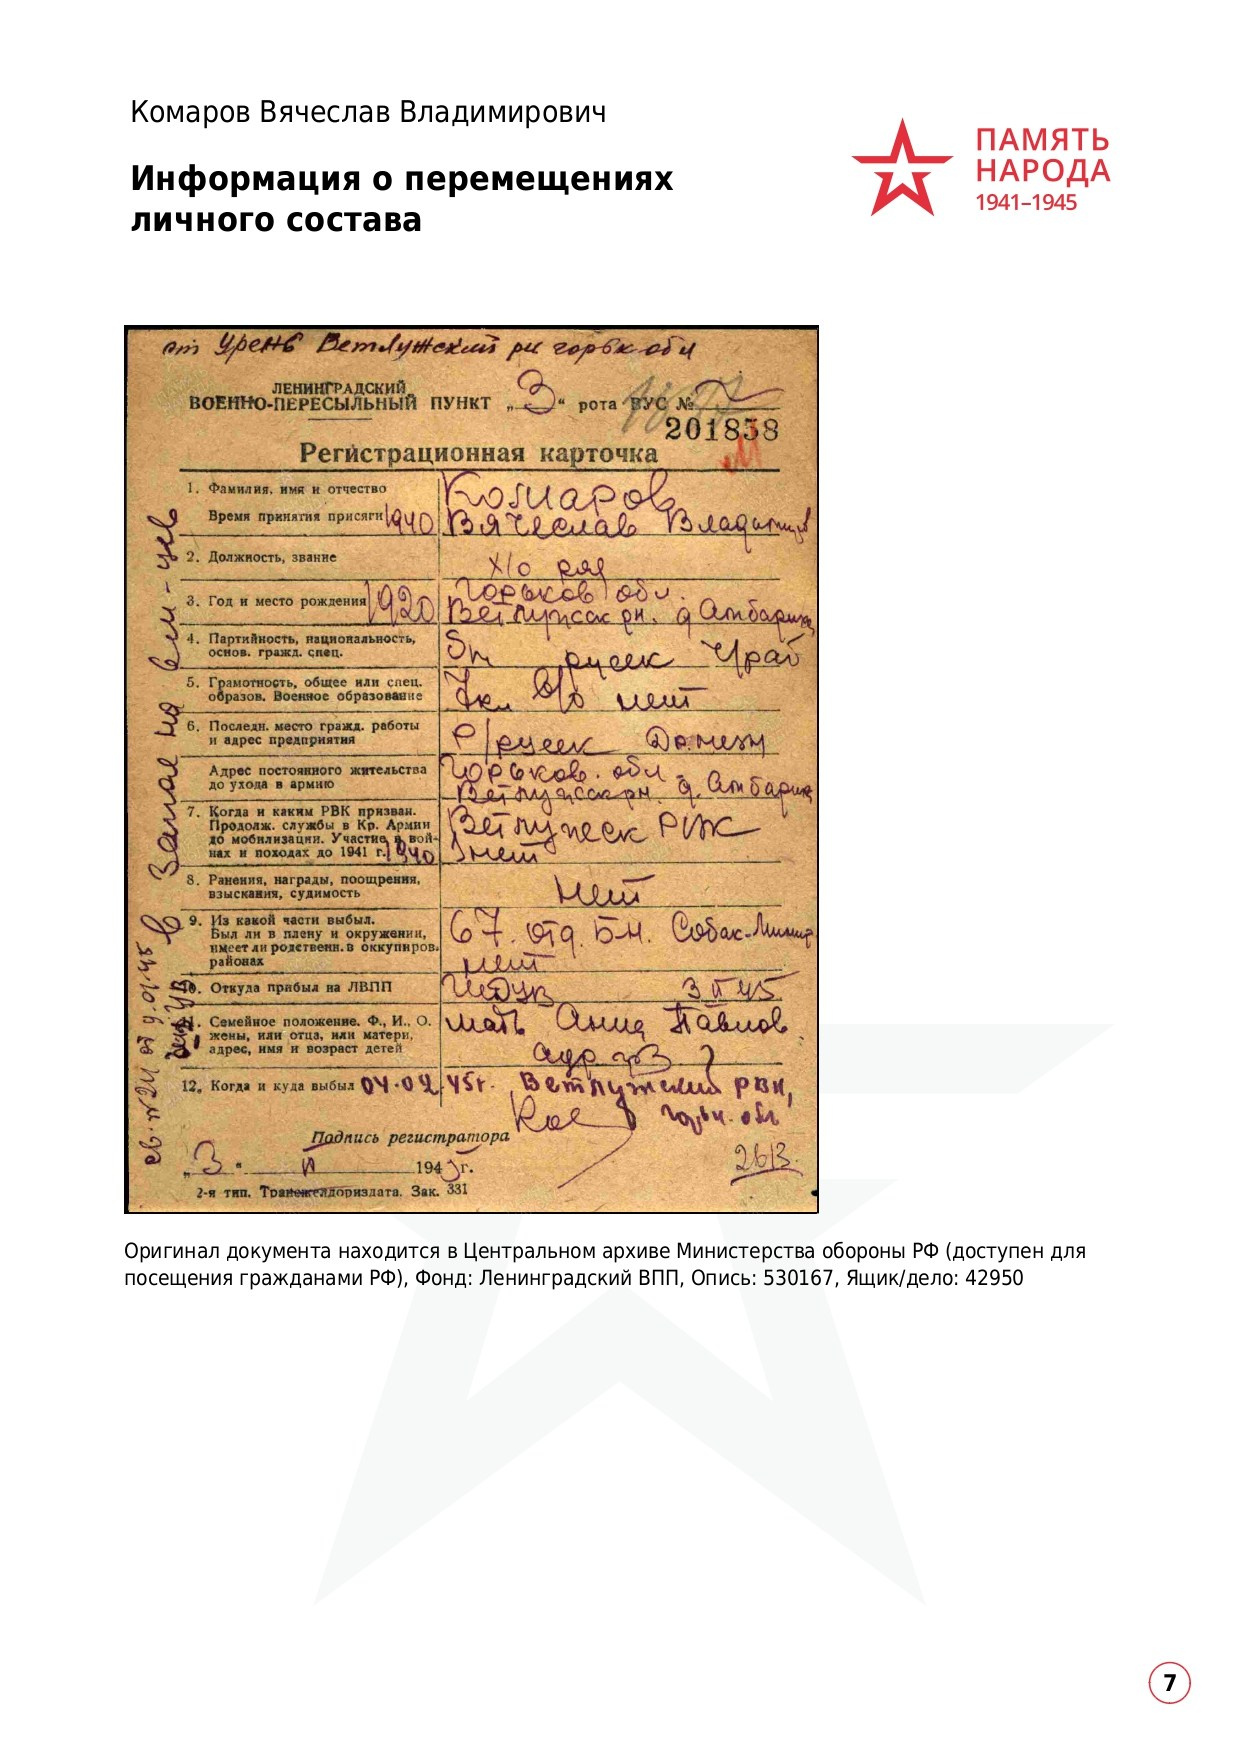 Комаров Вячеслав Владимирович
Информация о перемещениях
личного состава
ПАМЯТЬ
НАРОДА
1941–1945
ст Урень Ветлужский рн горьк обл
ЛЕНИНГРАДСКИЙ
ВОЕННО-ПЕРЕСЫЛЬНЫЙ ПУНКТ „3“ рота ВУС №
201838
Регистрационная карточка
1. Фамилия, имя и отчество Комаров
Время принятия присяги 1940 Вячеслав Владимиров
2. Должность, звание х/о ряд
3. Год и место рождения 1920 Горьков обл.
Ветлужск рн. д Амбариха
4. Партийность, национальность,
основ. гражд. спец. русск Ч/раб
5. Грамотность, общее или спец.
образов. Военное образование 7кл в/о нет
6. Последн. место гражд. работы
и адрес предприятия
Адрес постоянного жительства Горьков. обл.
до ухода в армию Ветлужск рн. д. Амбариха
7. Когда и каким РВК призван.
Продолж. службы в Кр. Армии Ветлужск РВК
до мобилизации. Участие в вой-
нах и походах до 1941 г. 1940 нет
8. Ранения, награды, поощрения,
взыскания, судимость нет
9. Из какой части выбыл.
Был ли в плену и окружении, 67. отд. б-н. Собак-Минир
имеет ли родственн. в оккупиров.
районах нет
10. Откуда прибыл на ЛВПП 3 II 45
11. Семейное положение. Ф., И., О. мать Анна Павлов
жены, или отца, или матери,
адрес, имя и возраст детей адр
12. Когда и куда выбыл 04.02.45г. Ветлужский РВК,
горьк. обл
Подпись регистратора
„3“ II 1945г.
2613
2-я тип. Трансжелдориздата. Зак. 331
в Запас на
Оригинал документа находится в Центральном архиве Министерства обороны РФ (доступен для
посещения гражданами РФ), Фонд: Ленинградский ВПП, Опись: 530167, Ящик/дело: 42950
7